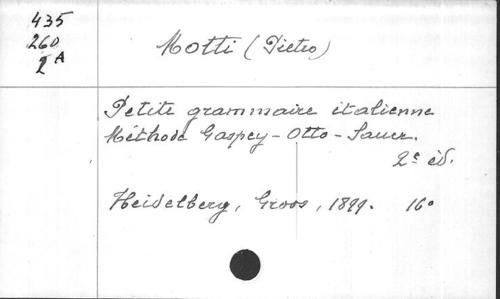 435
260
2 A
Motti (Pietro)
Petite grammaire italienne
Méthode Gaspey - Otto - Sauer.
2e éd.
Heidelberg, Groos, 1899. 16°